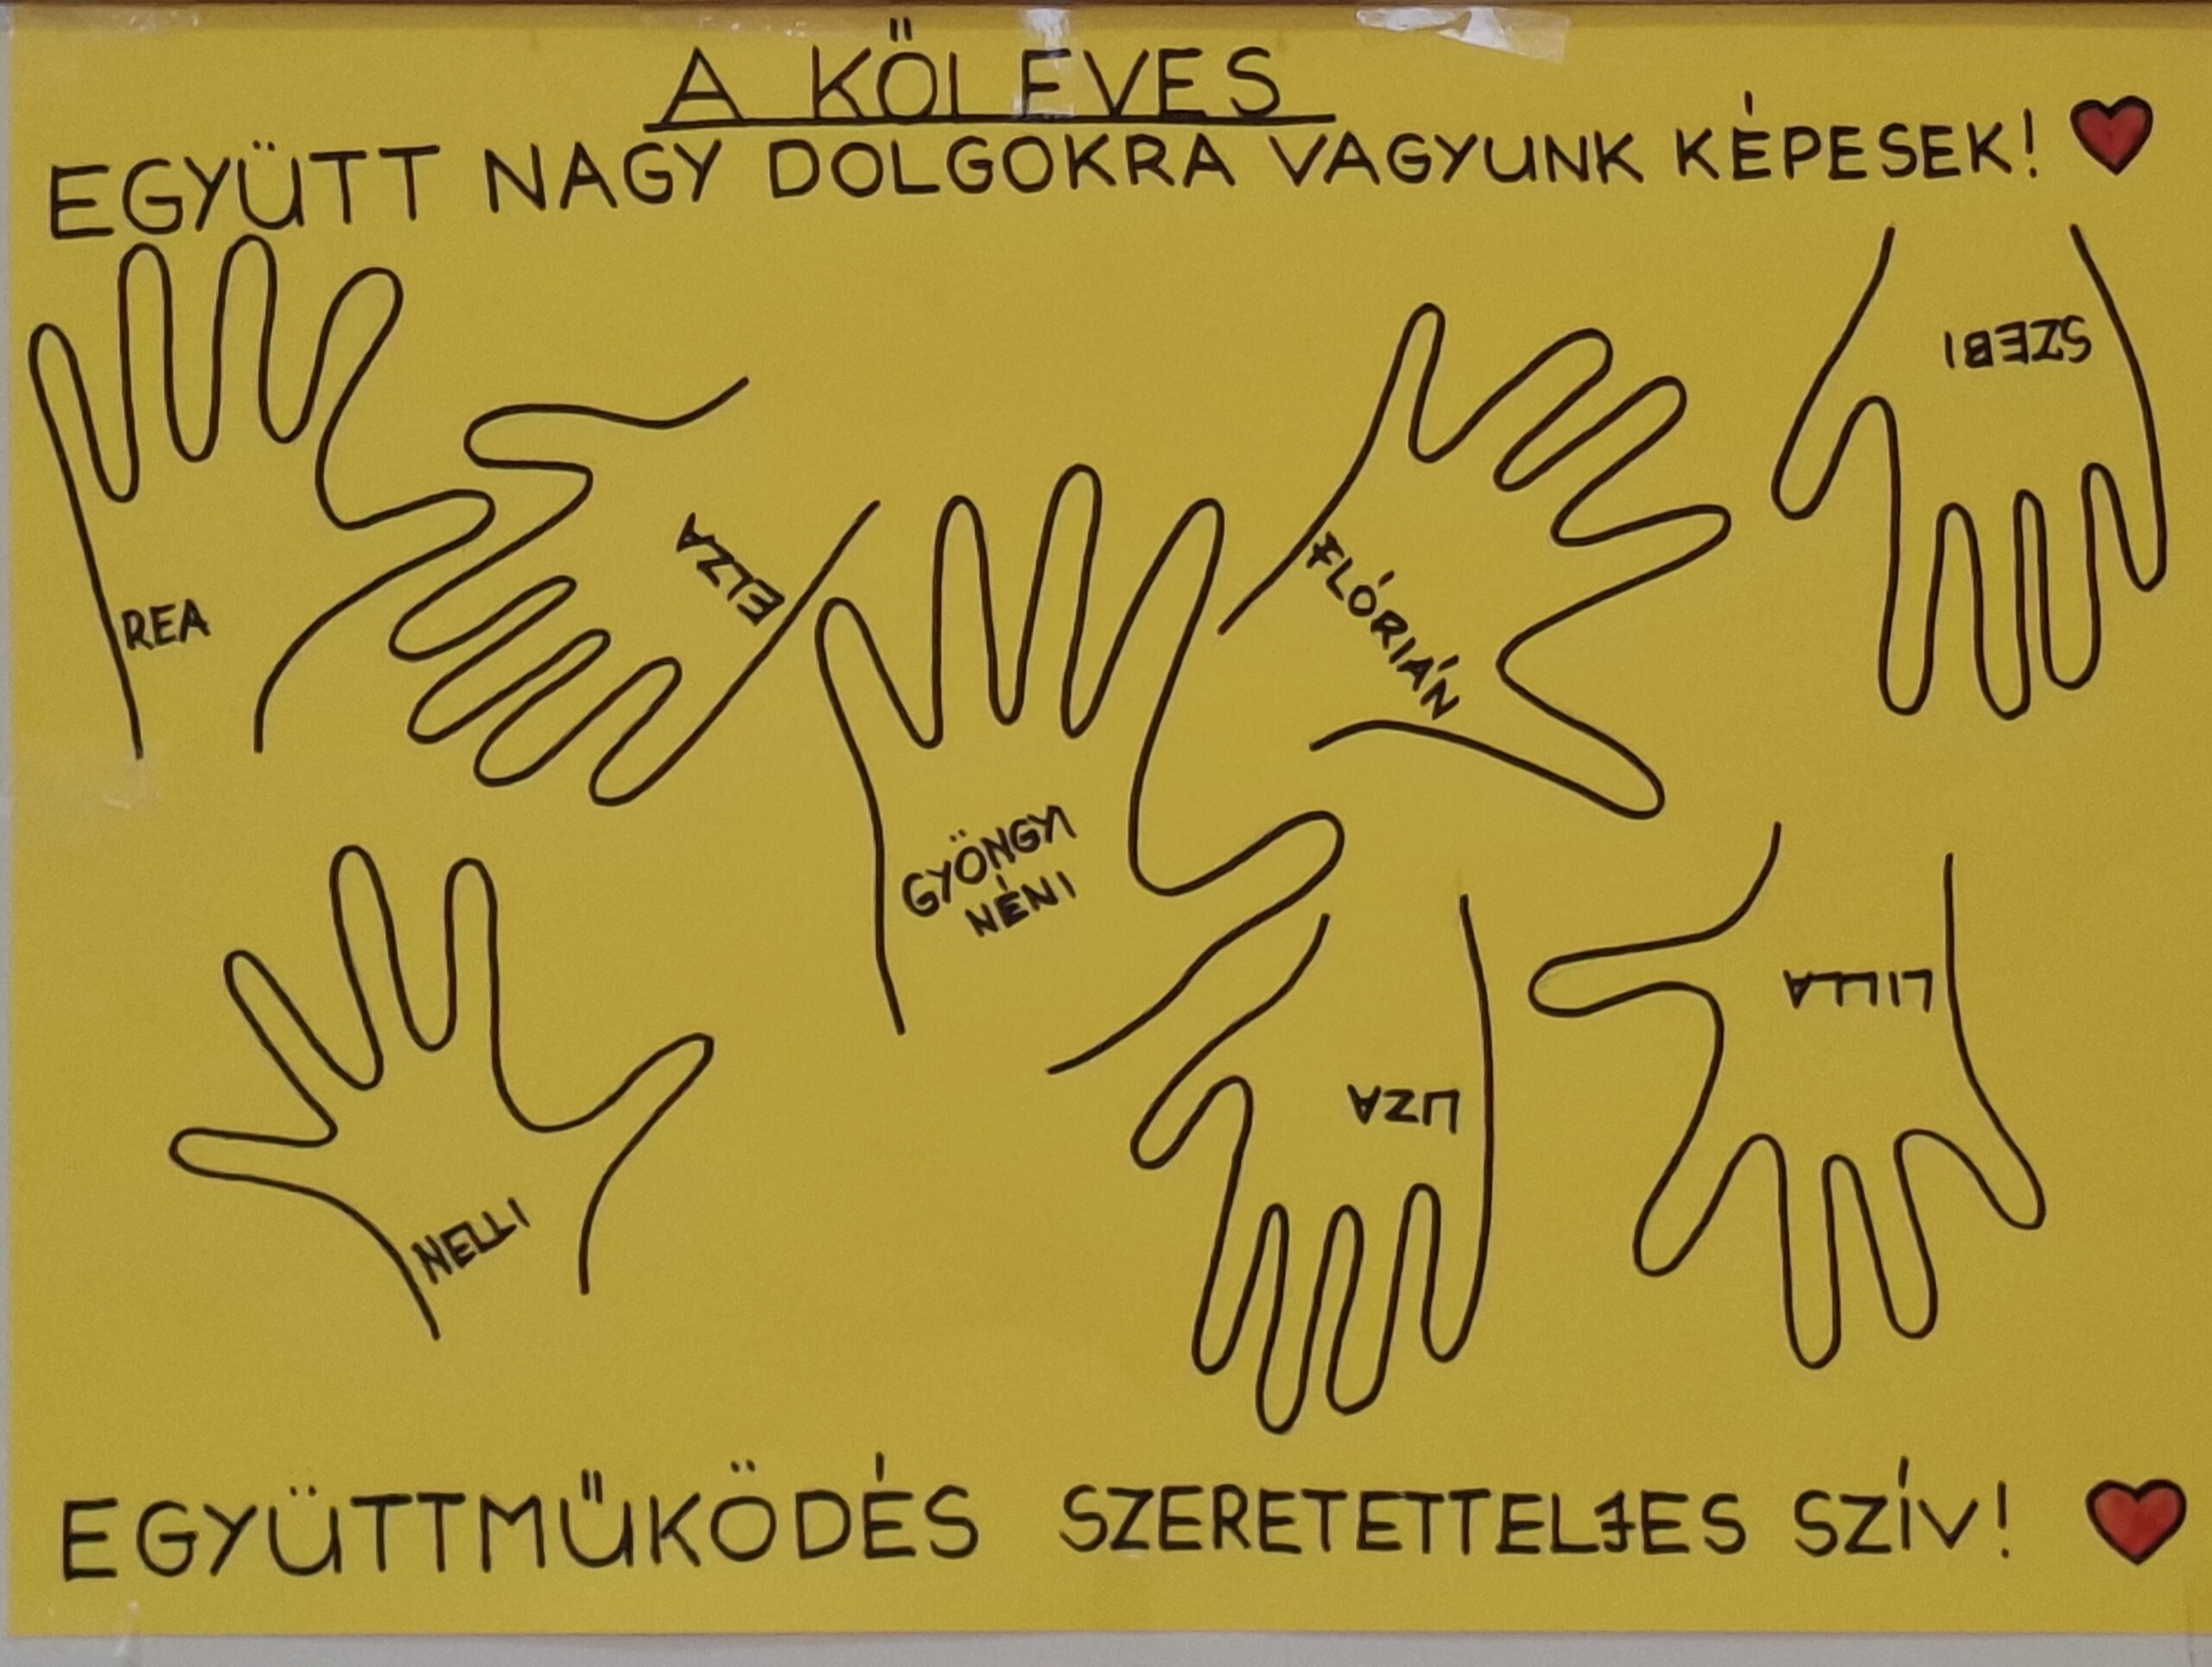 A KŐLEVES
EGYÜTT NAGY DOLGOKRA VAGYUNK KÉPESEK!
SZEBI
ELZA
FLÓRIÁN
REA
GYÖNGYI
NÉNI
LILLA
LIZA
NELLI
EGYÜTTMŰKÖDÉS SZERETETTELJES SZÍV!